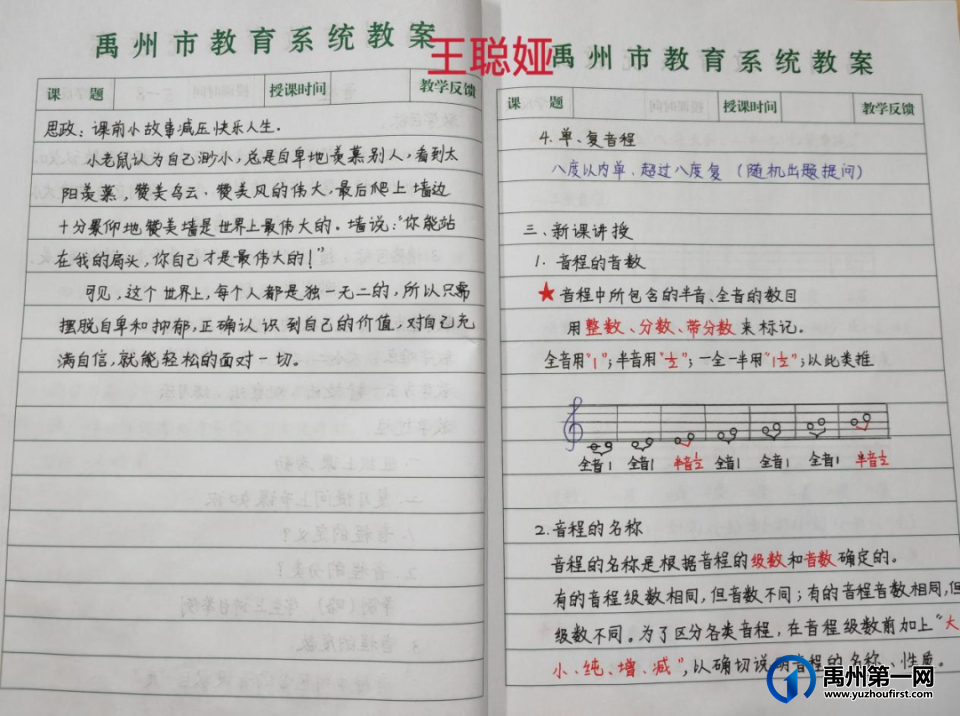 禹州市教育系统教案
王聪娅
课题 授课时间 教学反馈
思政：课前小故事减压快乐人生.
小老鼠认为自己渺小，总是自卑地羡慕别人，看到太
阳羡慕，赞美乌云.赞美风的伟大.最后爬上墙边
十分景仰地赞美墙是世界上最伟大的。墙说："你能站
在我的肩头，你自己才是最伟大的！"
可见，这个世界上，每个人都是独一无二的，所以只需
摆脱自卑和抑郁，正确认识到自己的价值，对自己充
满自信，就能轻松的面对一切。
禹州市教育系统教案
课题 授课时间 教学反馈
4.单、复音程
八度以内单.超过八度复（随机出题提问）
三、新课讲授
1.音程的音数
★音程中所包含的半音、全音的数目
用整数、分数、带分数来标记。
全音用"1"；半音用"½"；一全一半用"1½"；以此类推
全音1 全音1 半音½ 全音1 全音1 全音1 半音½
2.音程的名称
音程的名称是根据音程的级数和音数确定的。
有的音程级数相同，但音数不同；有的音程音数相同，但
级数不同。为了区分各类音程，在音程级数前加上"大
小、纯、增、减"，以确切说明音程的名称、性质。
禹州第一网
www.yuzhoufirst.com